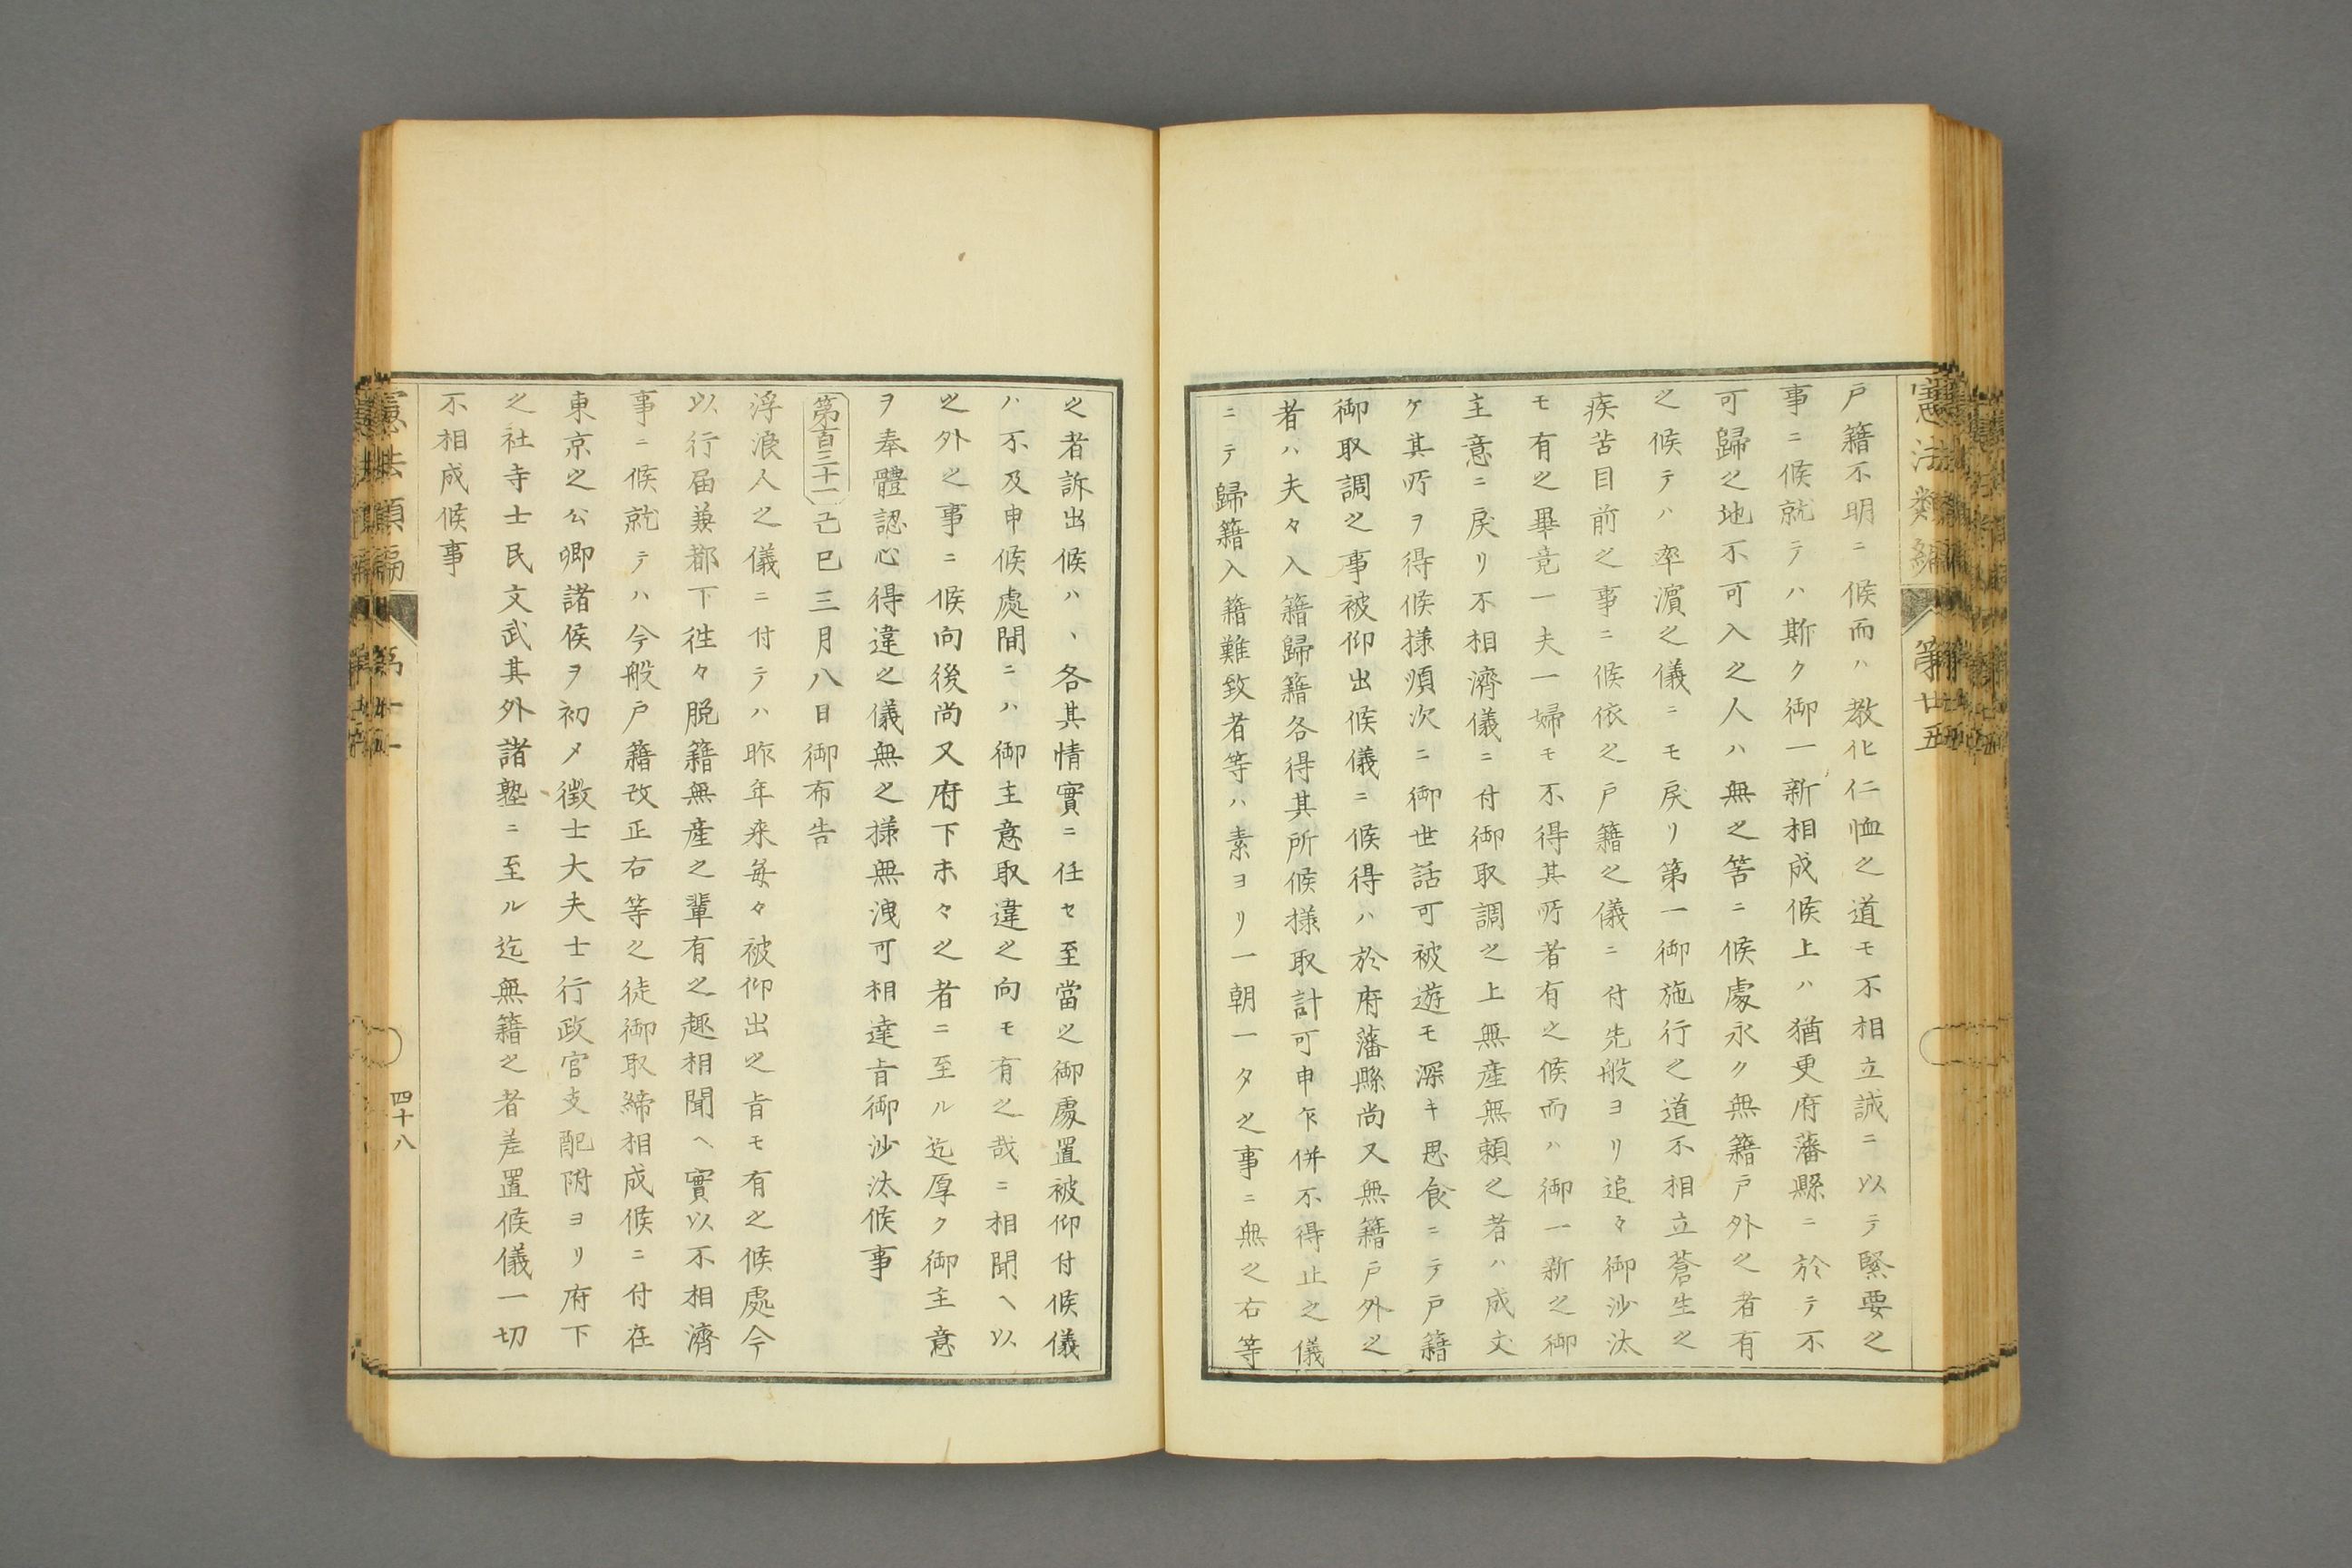 憲法類編
第廿五
戸籍不明ニ候而ハ教化仁恤之道モ不相立誠ニ以テ緊要之
事ニ候就テハ斯ク御一新相成候上ハ猶更府藩縣ニ於テ不
可歸之地不可入之人ハ無之筈ニ候處永ク無籍戸外之者有
之候テハ率濱之儀ニモ戻リ第一御施行之道不相立蒼生之
疾苦目前之事ニ候依之戸籍之儀ニ付先般ヨリ追々御沙汰
モ有之畢竟一夫一婦モ不得其所者有之候而ハ御一新之御
主意ニ戻リ不相濟儀ニ付御取調之上無産無頼之者ハ成丈
ケ其所ヲ得候様順次ニ御世話可被遊モ深キ思食ニテ戸籍
御取調之事被仰出候儀ニ候得ハ於府藩縣尚又無籍戸外之
者ハ夫々入籍歸籍各得其所候様取計可申乍併不得止之儀
ニテ歸籍入籍難致者等ハ素ヨリ一朝一夕之事ニ無之右等
之者訴出候ハヽ各其情實ニ任セ至當之御處置被仰付候儀
ハ不及申候處間ニハ御主意取違之向モ有之哉ニ相聞ヘ以
之外之事ニ候向後尚又府下末々之者ニ至ル迄厚ク御主意
ヲ奉體認心得違之儀無之様無洩可相達旨御沙汰候事
第百三十一己巳三月八日御布告
浮浪人之儀ニ付テハ昨年来毎々被仰出之旨モ有之候處今
以行届兼都下徃々脱籍無産之輩有之趣相聞ヘ實以不相濟
事ニ候就テハ今般戸籍改正右等之徒御取締相成候ニ付在
東京之公卿諸侯ヲ初メ徴士大夫士行政官支配附ヨリ府下
之社寺士民文武其外諸塾ニ至ル迄無籍之者差置候儀一切
不相成候事
四十八